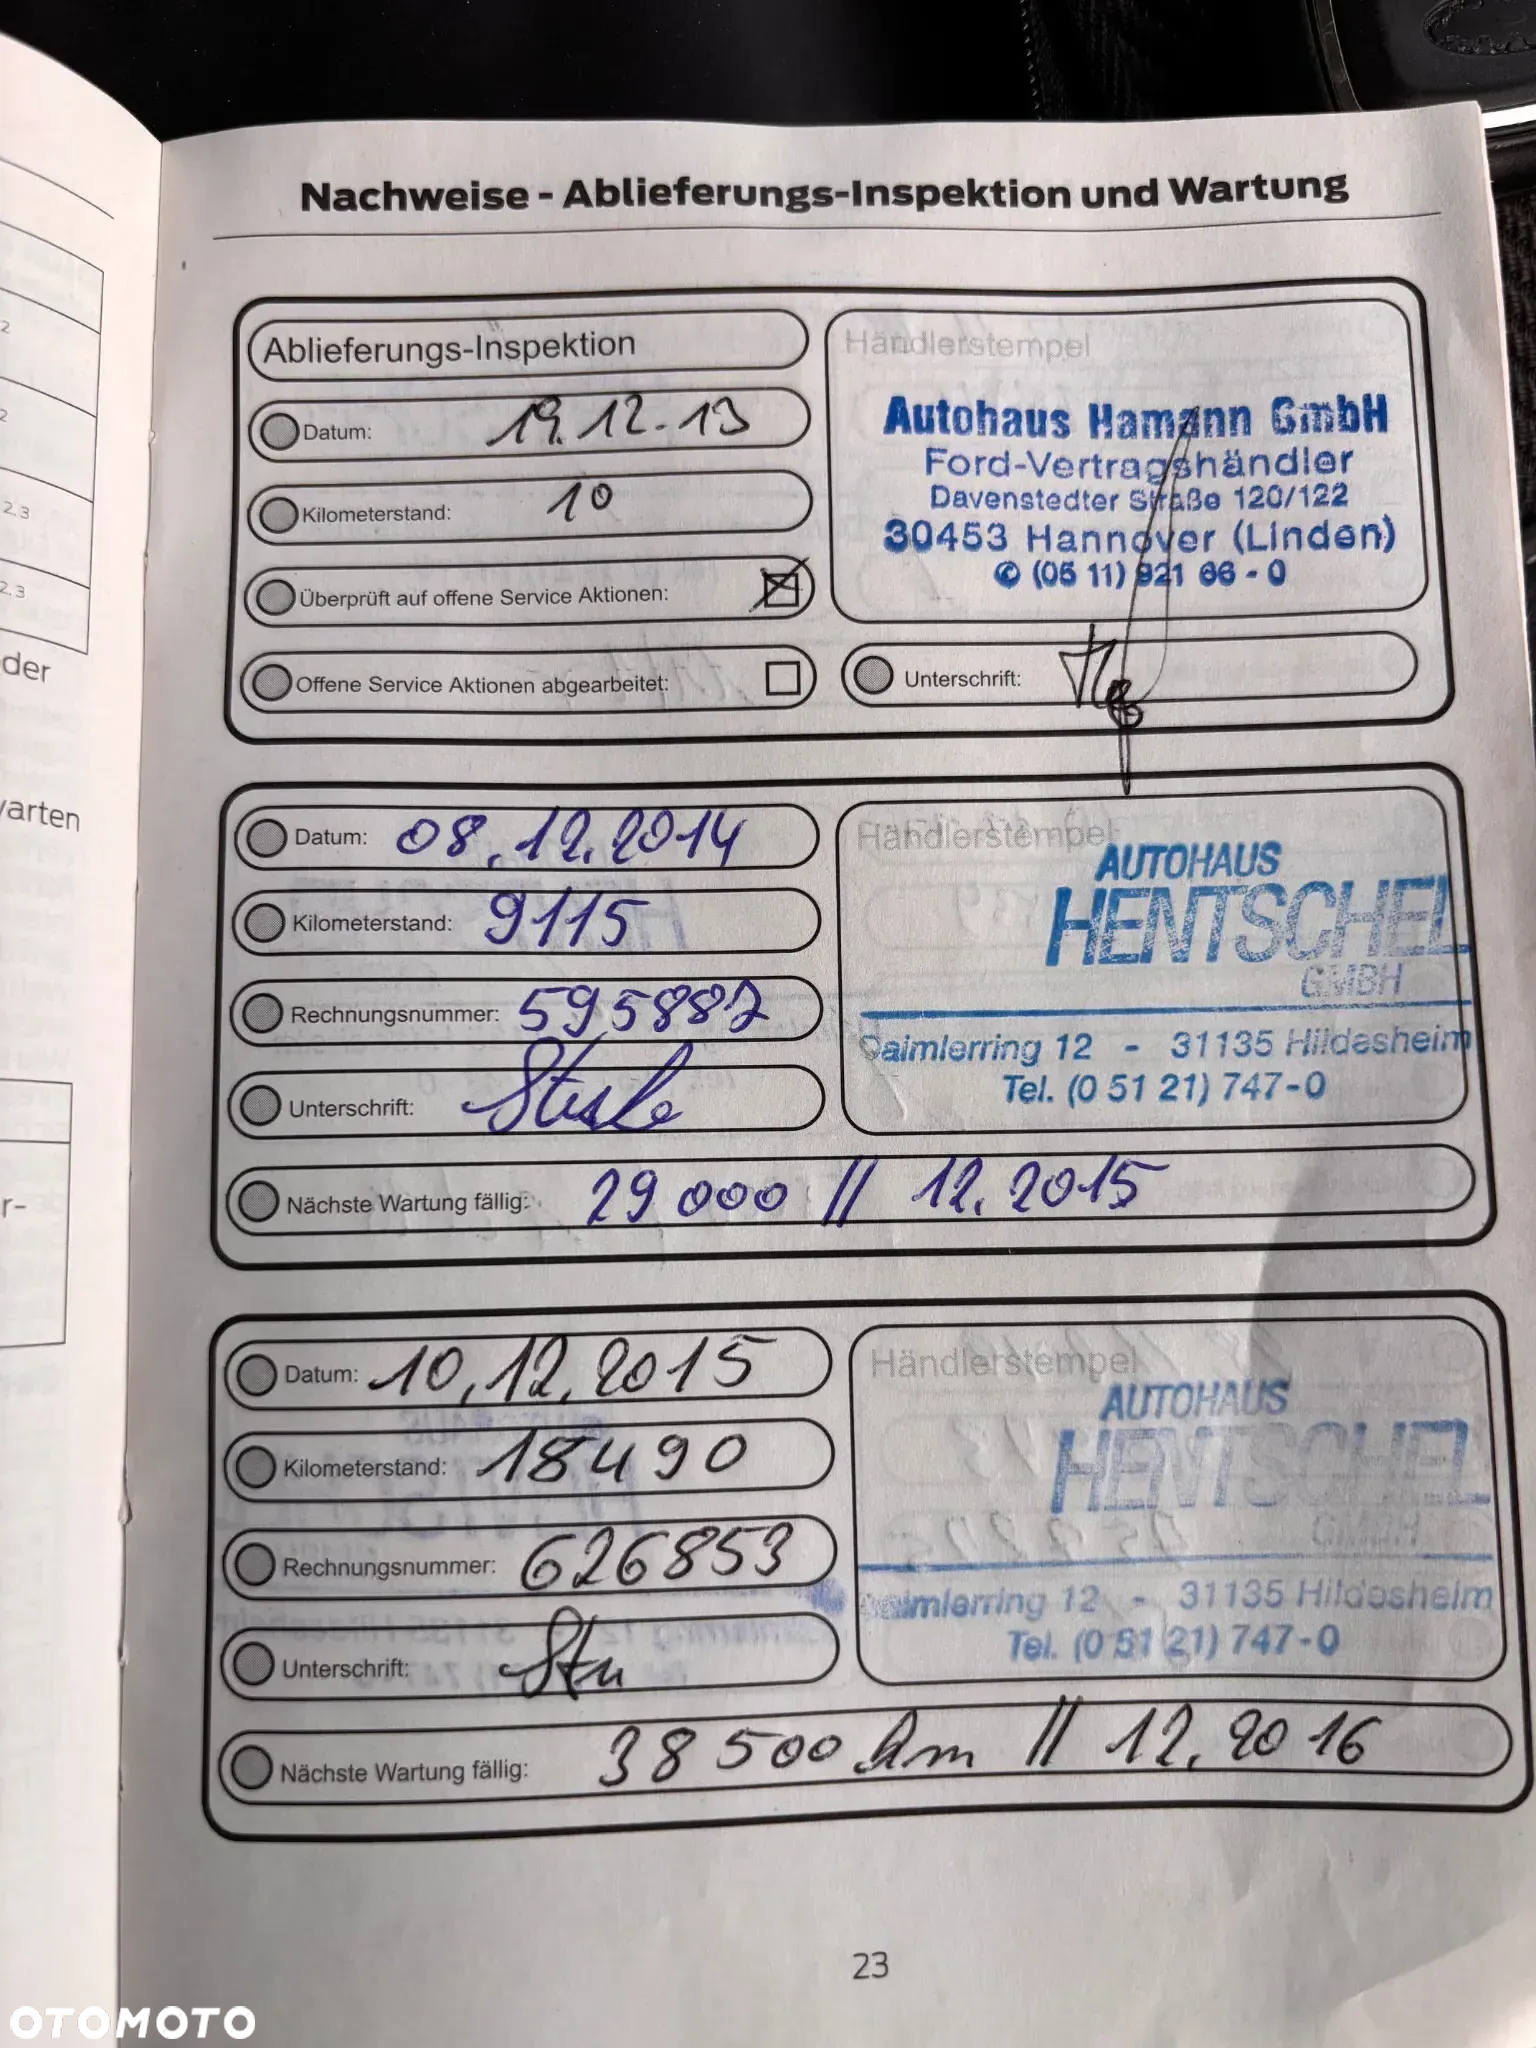 Nachweise - Ablieferungs-Inspektion und Wartung
Ablieferungs-Inspektion
Datum: 19.12.13
Kilometerstand: 10
Überprüft auf offene Service Aktionen:
Offene Service Aktionen abgearbeitet:
Händlerstempel
Autohaus Hamann GmbH
Ford-Vertragshändler
Davenstedter Straße 120/122
30453 Hannover (Linden)
✆ (05 11) 921 66 - 0
Unterschrift:
Datum: 08.12.2014
Kilometerstand: 9115
Rechnungsnummer: 595887
Unterschrift:
Händlerstempel
AUTOHAUS
HENTSCHEL
GMBH
Daimlerring 12 - 31135 Hildesheim
Tel. (0 51 21) 747-0
Nächste Wartung fällig: 29 000 // 12.2015
Datum: 10.12.2015
Kilometerstand: 18490
Rechnungsnummer: 626853
Unterschrift:
Händlerstempel
AUTOHAUS
HENTSCHEL
GMBH
Daimlerring 12 - 31135 Hildesheim
Tel. (0 51 21) 747-0
Nächste Wartung fällig: 38 500 km // 12.2016
23
der
warten
r-
2
2
2, 3
2, 3
OTOMOTO